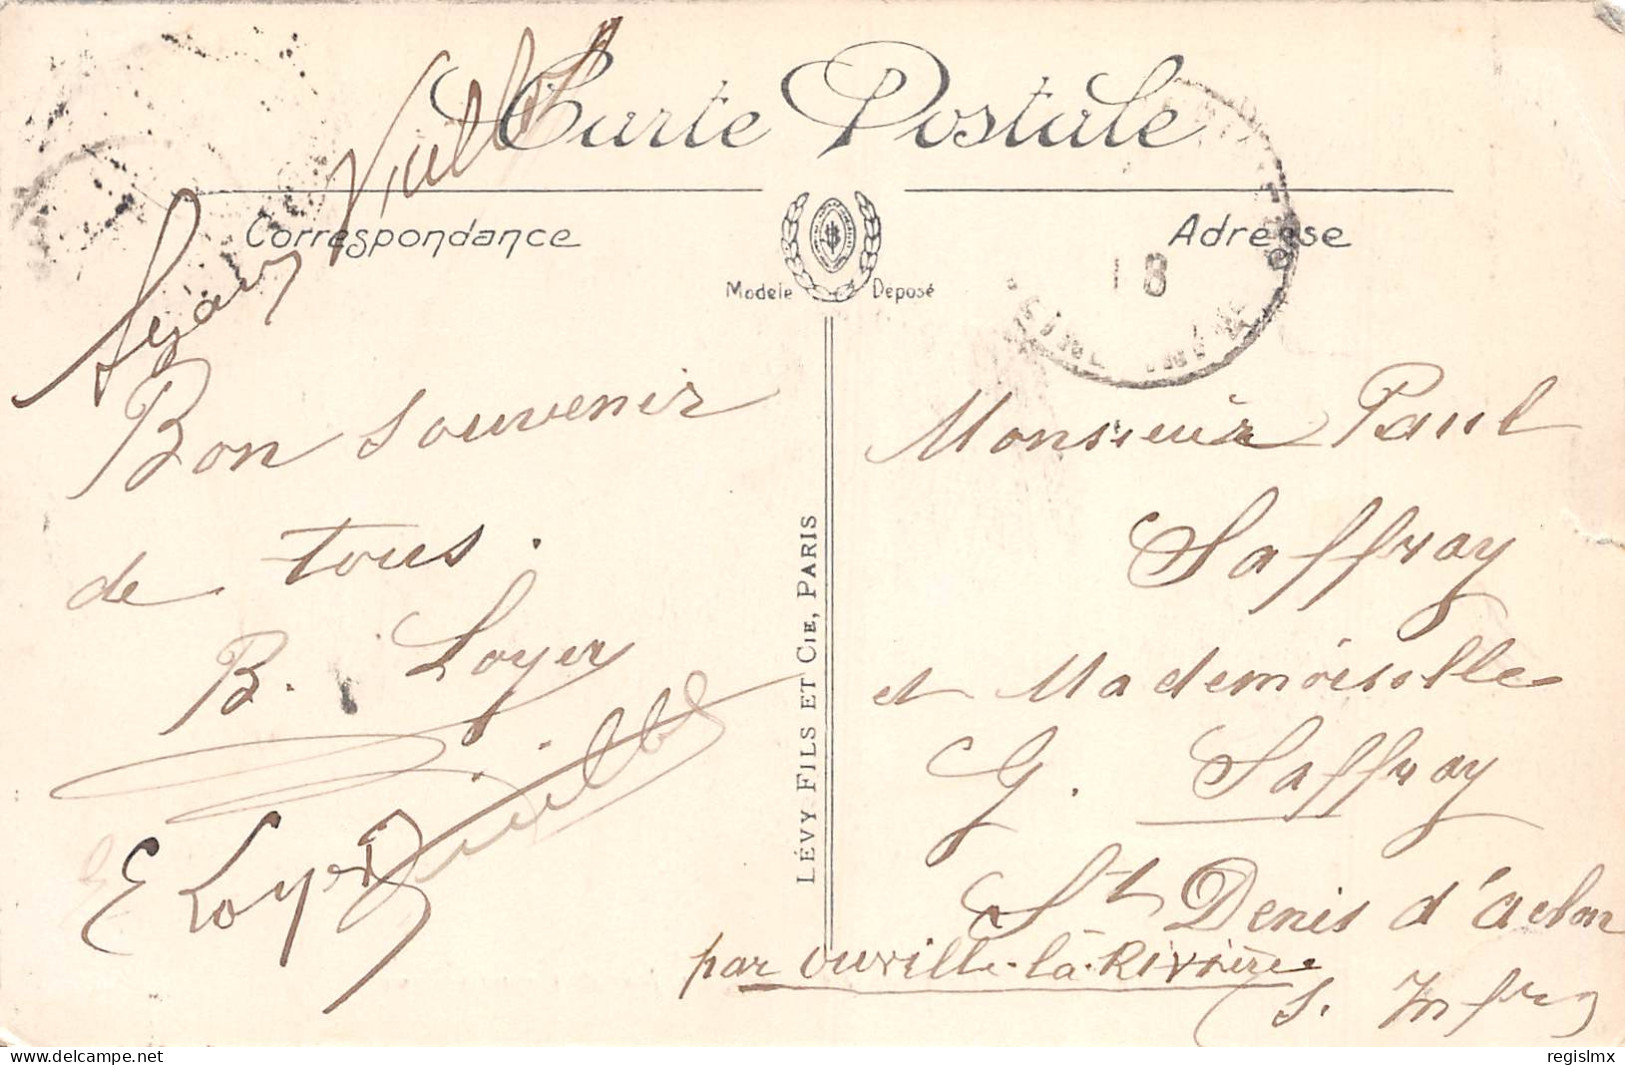 Carte Postale
Correspondance
Adresse
Modele Déposé
18
Bon souvenir
de tous.
B. Loyer
E Loyer
LÉVY FILS ET CIE, PARIS
Monsieur Paul
Saffray
et Mademoiselle
G. Saffray
St Denis d'aclon
par Ouville-la-Rivière
S. Infre
www.delcampe.net
regislmx